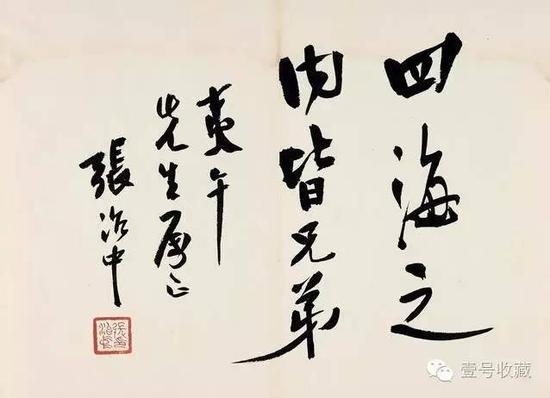 四海之
内皆兄弟
夷午
先生属正
張治中
張治中
壹号收藏